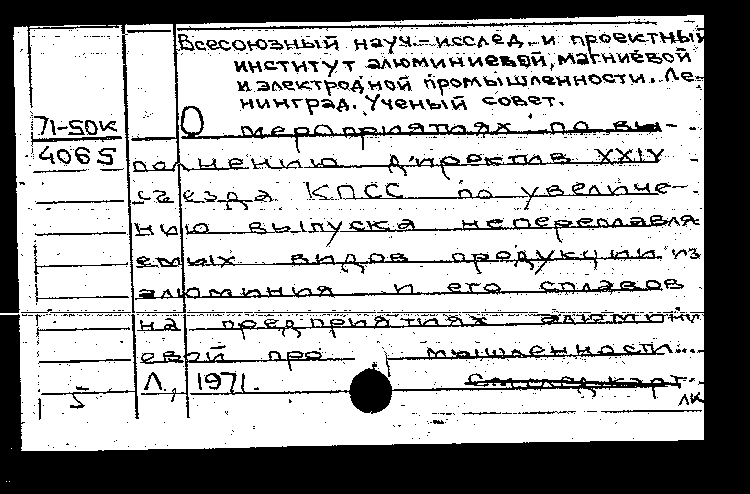 Всесоюзный науч.-исслед. и проектный
институт алюминиевой, магниевой
и электродной промышленности. Ле-
нинград. Ученый совет.
71-50к О мероприятиях по вы-
4065 полнению Директив XXIV
съезда КПСС по увеличе-
нию выпуска неперeплавля
емых видов продукции из
алюминия и его сплавов
на предприятиях алюмини
евой про мышленности...
5 Л., 1971. см след карт.
ЛК